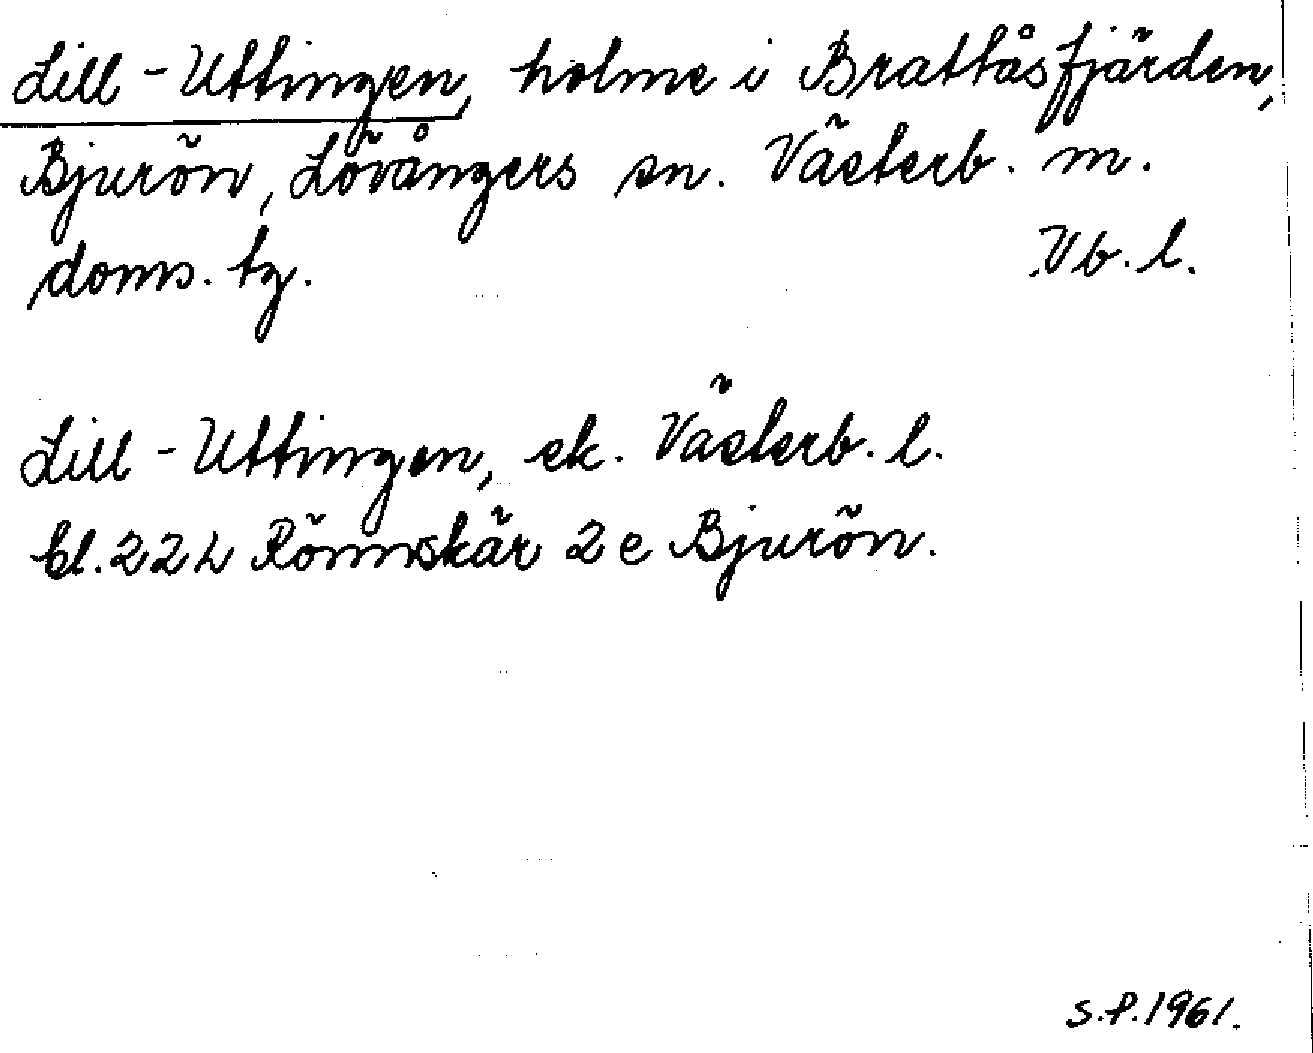 Lill-Uttingen, holme i Brattåsfjärden,
Bjurön, Lövångers sn. Västerb. m.
doms. tg. Vb. l.
Lill-Uttingen, ek. Västerb. l.
bl. 22 L Rönnskär 2 e Bjurön.
S.P. 1961.